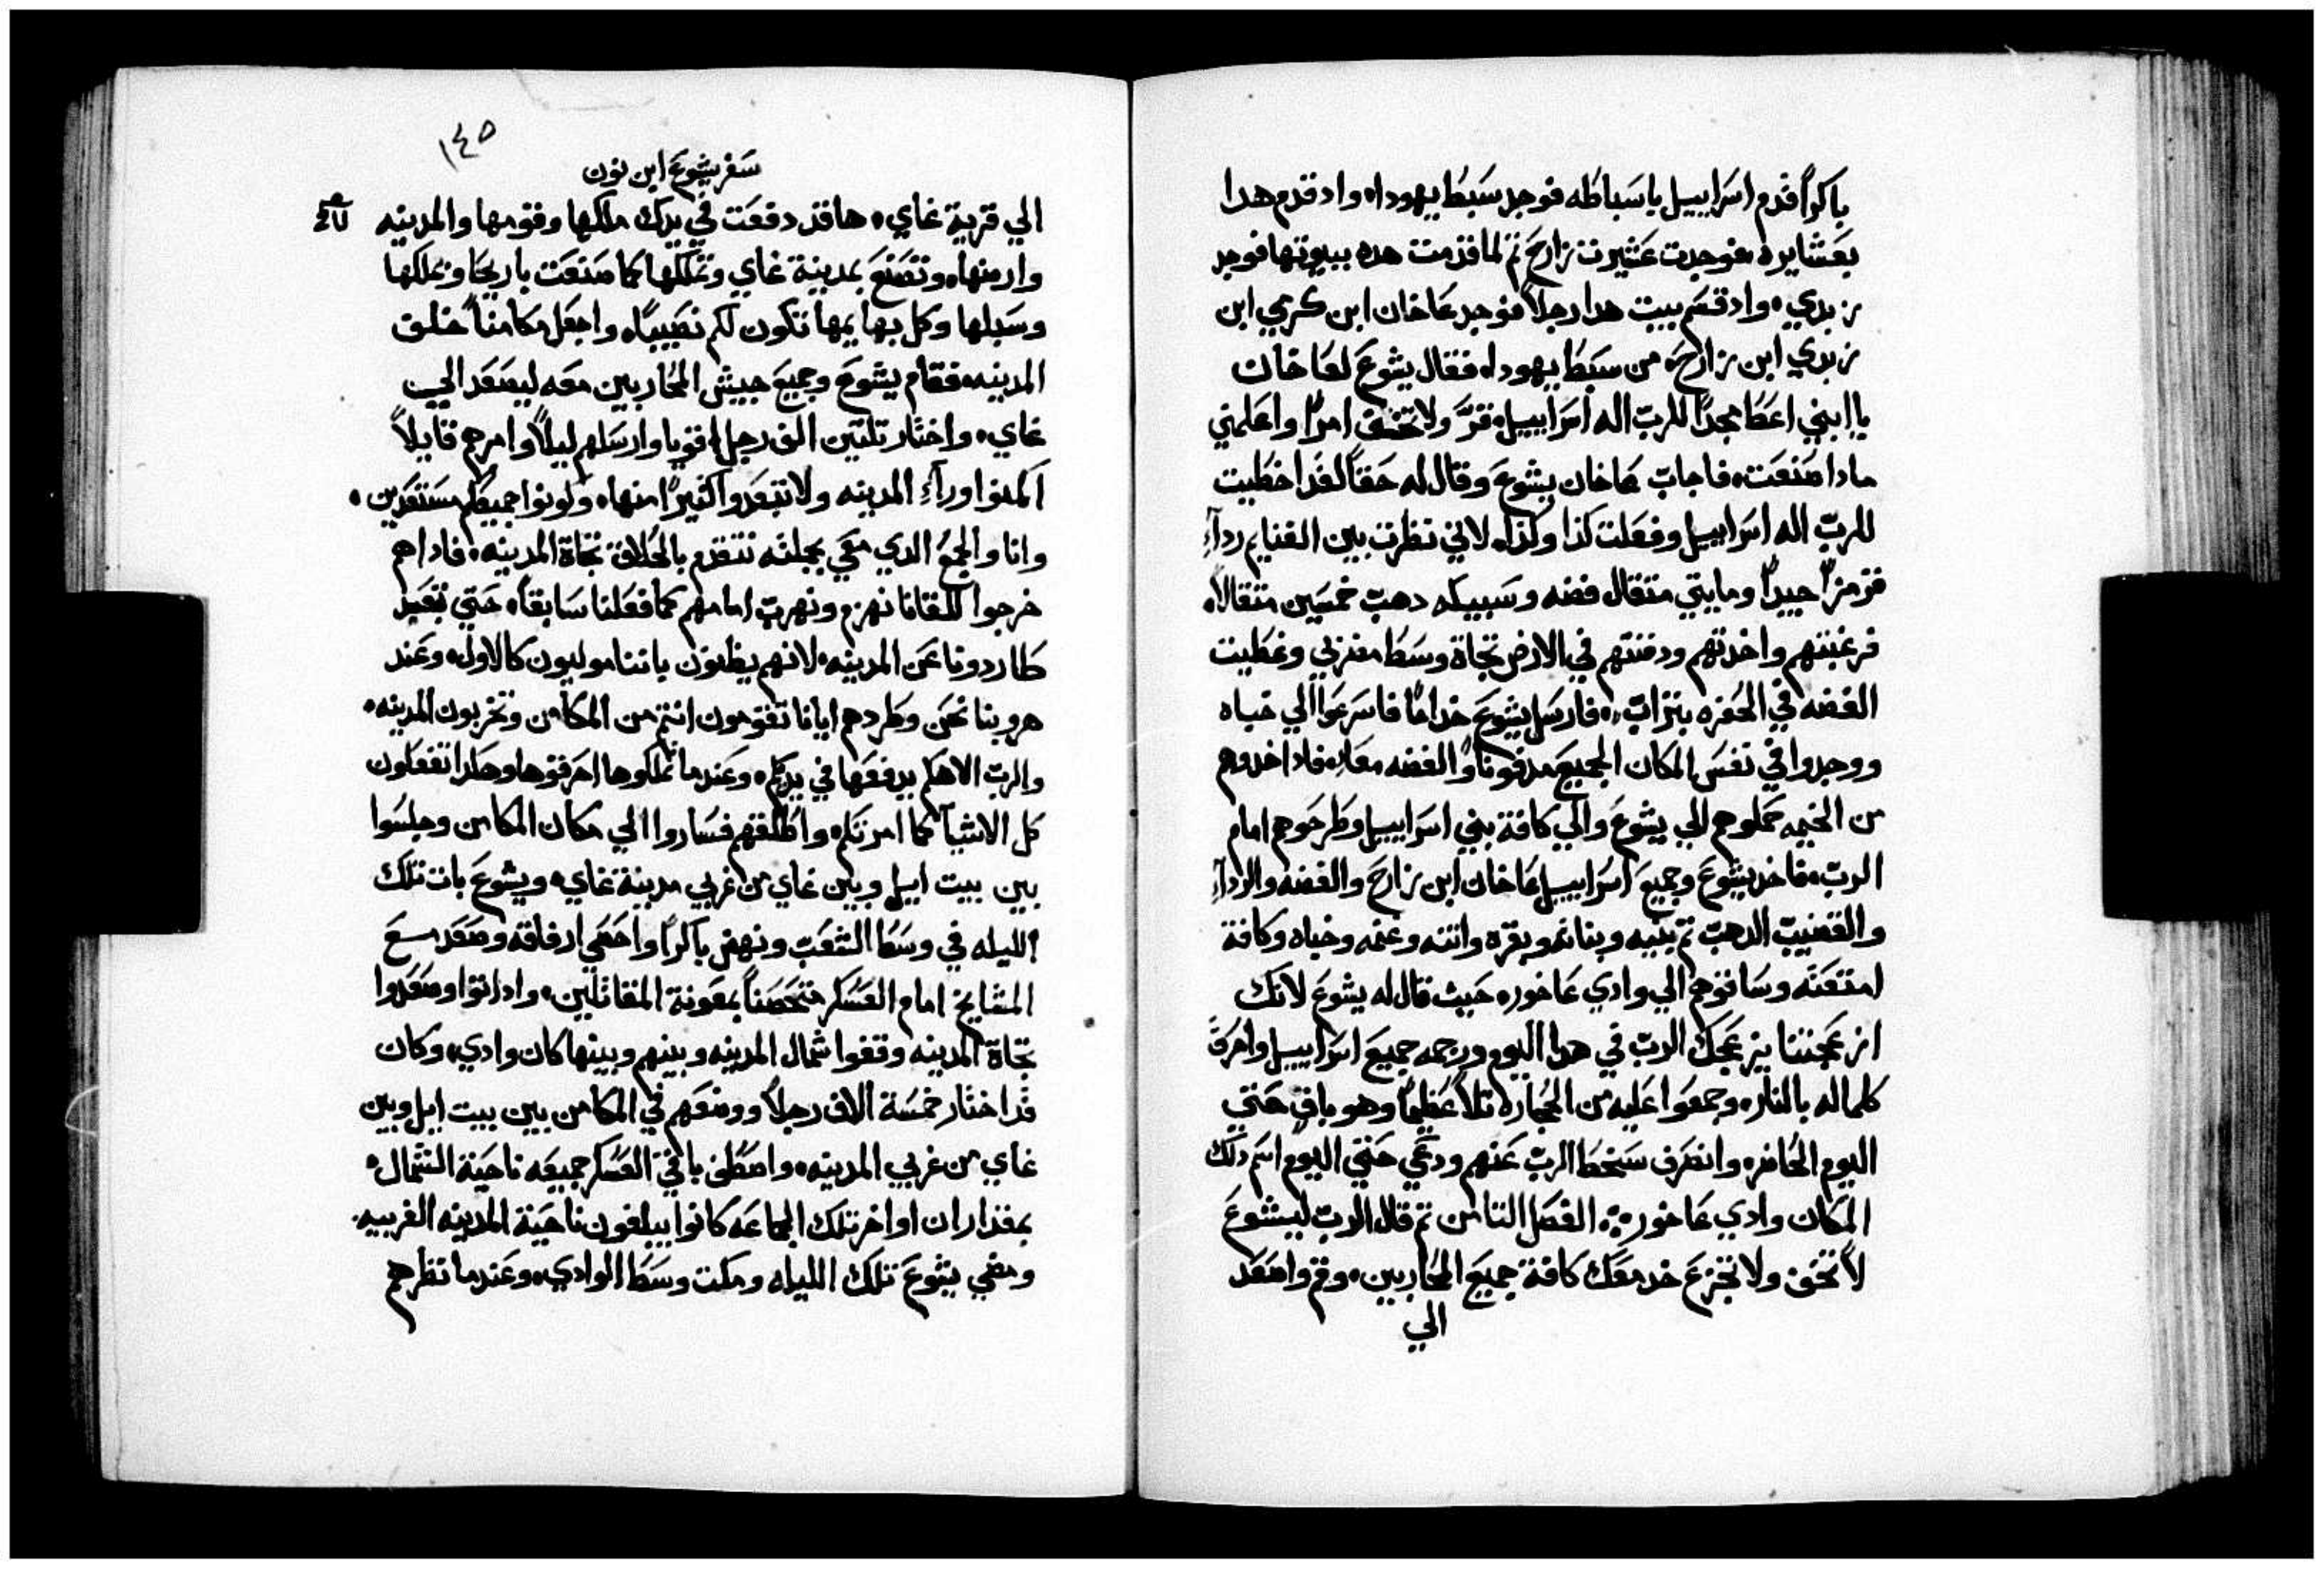 باكراً قدم اسراييل باسباطه فوجد سبط يهودا، واد قدم هدا
بعشايره فوجدت عشيرت زارح تم لما قدمت هده ببيوتها فوجد
زبدي، واد قسم بيت هدا رجلاً فوجد عاخان ابن كرمي ابن
زبدي ابن زارح، من سبط يهودا، فقال يشوع لعاخان
يا ابني اعط مجداً للرب اله اسراييل، قرّ ولا تخف امراً واعلمني
مادا صنعت، فاجاب عاخان يشوع وقال له حقاً لقد اخطيت
للرب اله اسراييل وفعلت كذا وكذا، لاني نظرت بين الغنايم ردآءِ
قرمزاً جيداً ومايتي متقال فضه وسبيكه دهب خمسين متقالاً،
فرغبتهم واخدتهم ودفنتهم في الارض تجاة وسط منزلي وغطيت
الفضه في الحفره بتراب، فارسل يشوع خداماً فاسرعوا الي خباه
ووجدوا في نفس المكان الجميع مدفوناً والفضه معاً، فاد اخدوهم
من الخيمه حملوهم الي يشوع والي كافة بني اسراييل وطرحوهم امام
الرب، فاخد يشوع وجميع اسراييل عاخان ابن زارح والفضه والردآءِ
والقضيب الدهب تم بنيه وبناته وبقره واتنه وغنمه وخباه وكافة
امتعته وساقوهم الي وادي عاخور، حيث قال له يشوع لانك
ازعجتنا يزعجك الرب في هدا اليوم ورجمه جميع اسراييل واحرق
كلما له بالنار، وجمعوا عليه من الحجاره تلاً عظيماً وهو باقٍ حتي
اليوم الحاضر، وانصرف سخط الرب عنهم ودعي حتي اليوم اسم دلك
المكان وادي عاخور، الفصل التامن تم قال الرب ليشوع
لا تخف ولا تجزع خد معك كافة جميع المحاربين، وقم واصعد
الي
١٤٥
سفر يشوع ابن نون
الي قرية غاي، ها قد دفعت في يدك ملكها وقومها والمدينه
وارضها، وتصنع بمدينة غاي وتملكها كما صنعت باريحا وتملكها
وسبلها وكل بهايمها تكون لكم نصيباً، واجعل مكامناً خلف
المدينه، فقام يشوع وجميع جييش المحاربين معه ليصعد الي
غاي، واختار تلتين الف رجل اقويا وارسلهم ليلاً وامرهم قايلاً
اكمنوا ورآءِ المدينه ولا تبعدوا كثيراً منها، وكونوا جميعكم مستعدين،
وانا والجمع الدي معي بجملته نتقدم بالخلاف تجاة المدينه، فاداهم
خرجوا للقانا نهزم ونهرب امامهم كما فعلنا سابقاً، حتي تبعد
طاردونا عن المدينه، لانهم يظنون باننا موليون كالاول، وعند
هروبنا نحن وطردهم ايانا تقومون انتم من المكامن وتخربون المدينه،
والرب الاهكم يدفعها في يدكم، وعندما تملكوها احرقوها وهكدا تفعلون
كل الاشيآ كما امرتكم، واطلقهم فساروا الي مكان المكامن وجلسوا
بين بيت ايل وبين غاي من غربي مدينة غاي، ويشوع بات تلك
الليله في وسط الشعب ونهض باكراً واحصي ارفاقه وصعد مع
المشايخ امام العسكر متحصناً بمعونة المقاتلين، واد اتوا وصعدوا
تجاة المدينه وقفوا شمال المدينه وبينهم وبينها كان وادي، وكان
قد اختار خمسة الاف رجلاً ووضعهم في المكامن بين بيت ايل وبين
غاي من غربي المدينه، واصطف باقي العسكر جميعه ناحية الشمال،
بمقدار ان اواخر تلك الجماعه كانوا يبلغون ناحية المدينه الغربيه.
ومضي يشوع تلك الليله ومكت وسط الوادي، وعندما نظرهم